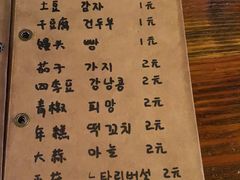 土豆 감자 1元
干豆腐 건두부 1元
馒头 빵 1元
茄子 가지 2元
四季豆 강낭콩 2元
青椒 피망 2元
年糕 떡꼬치 2元
大蒜 마늘 2元
느타리버섯 2元